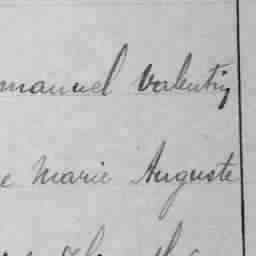 mmanuel Valentin
e Marie Auguste